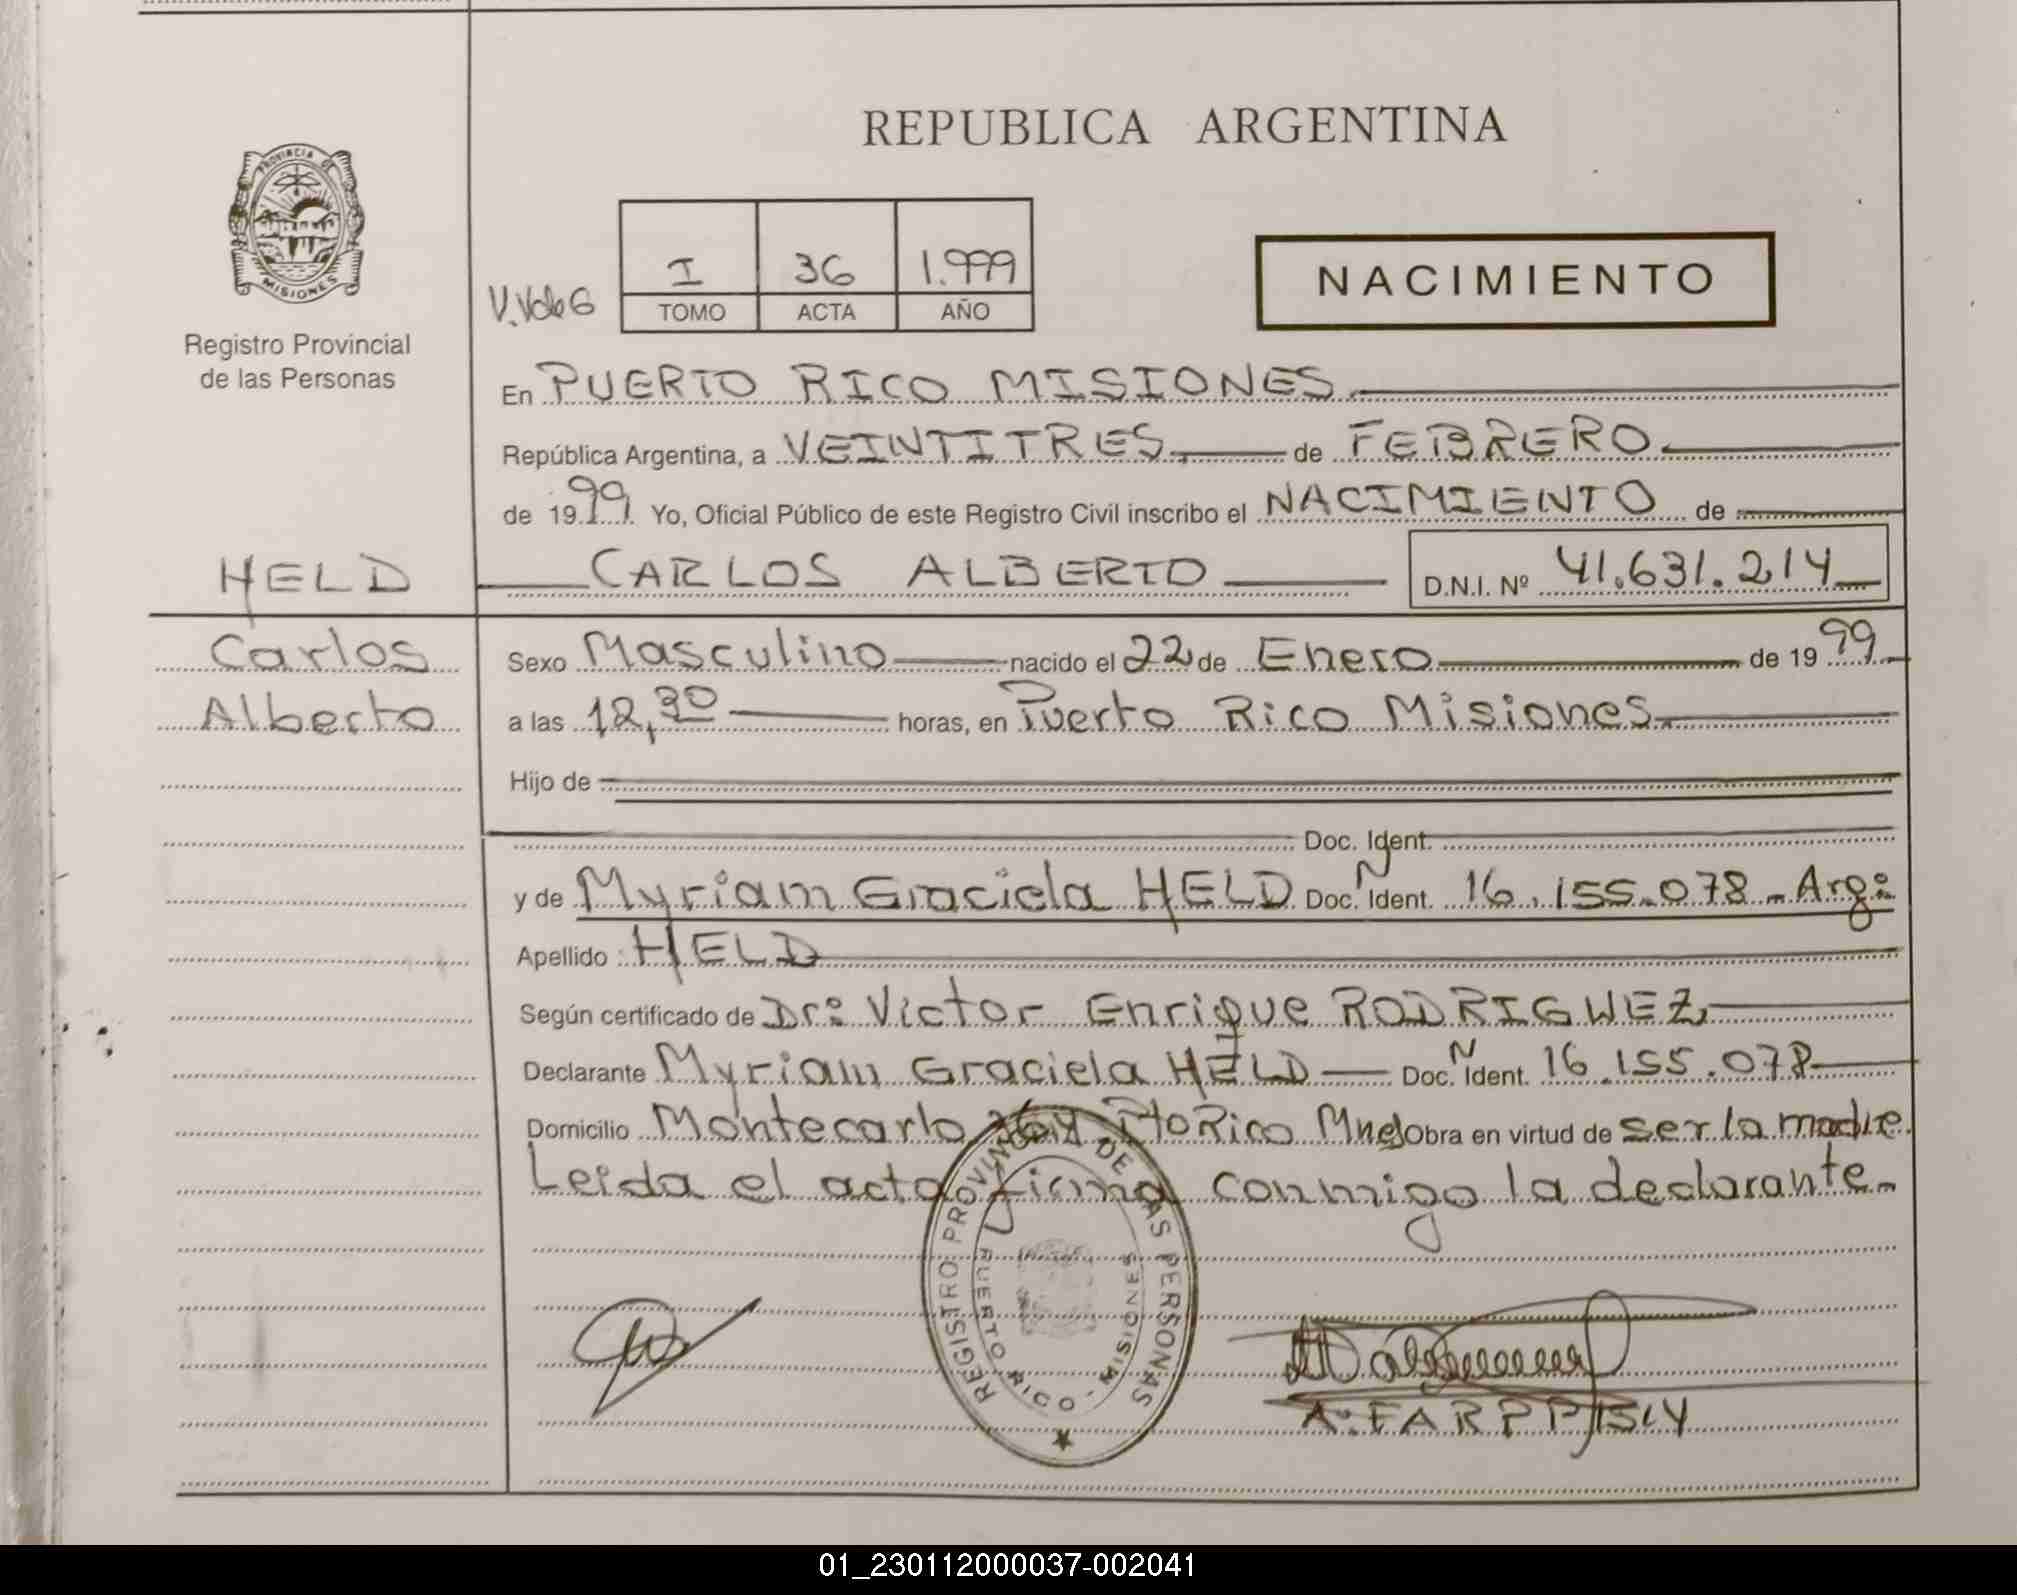 REPUBLICA ARGENTINA
PROVINCIA DE MISIONES
Registro Provincial
de las Personas
V.V de G
I 36 1.999
TOMO ACTA AÑO
NACIMIENTO
En PUERTO RICO MISIONES
República Argentina, a VEINTITRES de FEBRERO
de 1999. Yo, Oficial Público de este Registro Civil inscribo el NACIMIENTO de
HELD CARLOS ALBERTO D.N.I. Nº 41.631.214
Carlos Sexo Masculino nacido el 22 de Enero de 1999
Alberto a las 12,30 horas, en Puerto Rico Misiones
Hijo de
Doc. Ident.
y de Myriam Graciela HELD Doc. N Ident. 16.155.078 - Arg:
Apellido: HELD
Según certificado de Dr: Victor Enrique RODRIGWEZ
Declarante Myriam Graciela HELD Doc. N Ident. 16.155.078
Domicilio Montecarlo Pto Rico Mnes Obra en virtud de ser la madre
Leida el acta firma conmigo la declarante.
REGISTRO PROVINCIAL DE LAS PERSONAS
PUERTO RICO - MISIONES
01_230112000037-002041